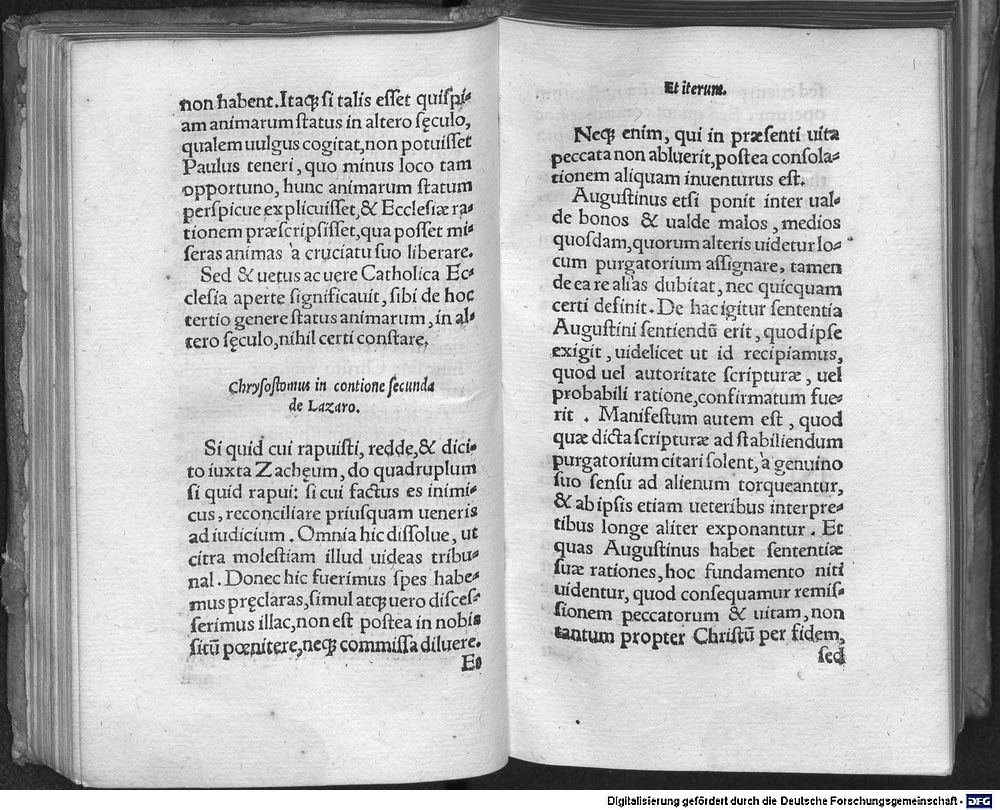 non habent. Itaqꝫ si talis esset quispi-
am animarum status in altero sęculo,
qualem uulgus cogitat, non potuisset
Paulus teneri, quo minus loco tam
opportuno, hunc animarum statum
perspicue explicuisset, & Ecclesiæ ra-
tionem præscripsisset, qua posset mi-
seras animas à cruciatu suo liberare.
Sed & uetus ac uere Catholica Ec-
clesia aperte significauit, sibi de hoc
tertio genere status animarum, in al-
tero sęculo, nihil certi constare.
Chrysostomus in contione secunda
de Lazaro.
Si quid cui rapuisti, redde, & dici-
to iuxta Zachęum, do quadruplum
si quid rapui: si cui factus es inimi-
cus, reconciliare priusquam ueneris
ad iudicium. Omnia hic dissolue, ut
citra molestiam illud uideas tribu-
nal. Donec hic fuerimus spes habe-
mus pręclaras, simul atqꝫ uero disces-
serimus illac, non est postea in nobis
sitū pœnitere, neqꝫ commissa diluere.
Et
Et iterum.
Neqꝫ enim, qui in præsenti uita
peccata non abluerit, postea consola-
tionem aliquam inuenturus est.
Augustinus etsi ponit inter ual-
de bonos & ualde malos, medios
quosdam, quorum alteris uidetur lo-
cum purgatorium assignare, tamen
de ea re aliàs dubitat, nec quicquam
certi definit. De hac igitur sententia
Augustini sentiendū erit, quod ipse
exigit, uidelicet ut id recipiamus,
quod uel autoritate scripturæ, uel
probabili ratione, confirmatum fue-
rit. Manifestum autem est, quod
quæ dicta scripturæ ad stabiliendum
purgatorium citari solent, à genuino
suo sensu ad alienum torqueantur,
& ab ipsis etiam ueteribus interpre-
tibus longe aliter exponantur. Et
quas Augustinus habet sententiæ
suæ rationes, hoc fundamento niti
uidentur, quod consequamur remis-
sionem peccatorum & uitam, non
tantum propter Christū per fidem,
sed
Digitalisierung gefördert durch die Deutsche Forschungsgemeinschaft - DFG